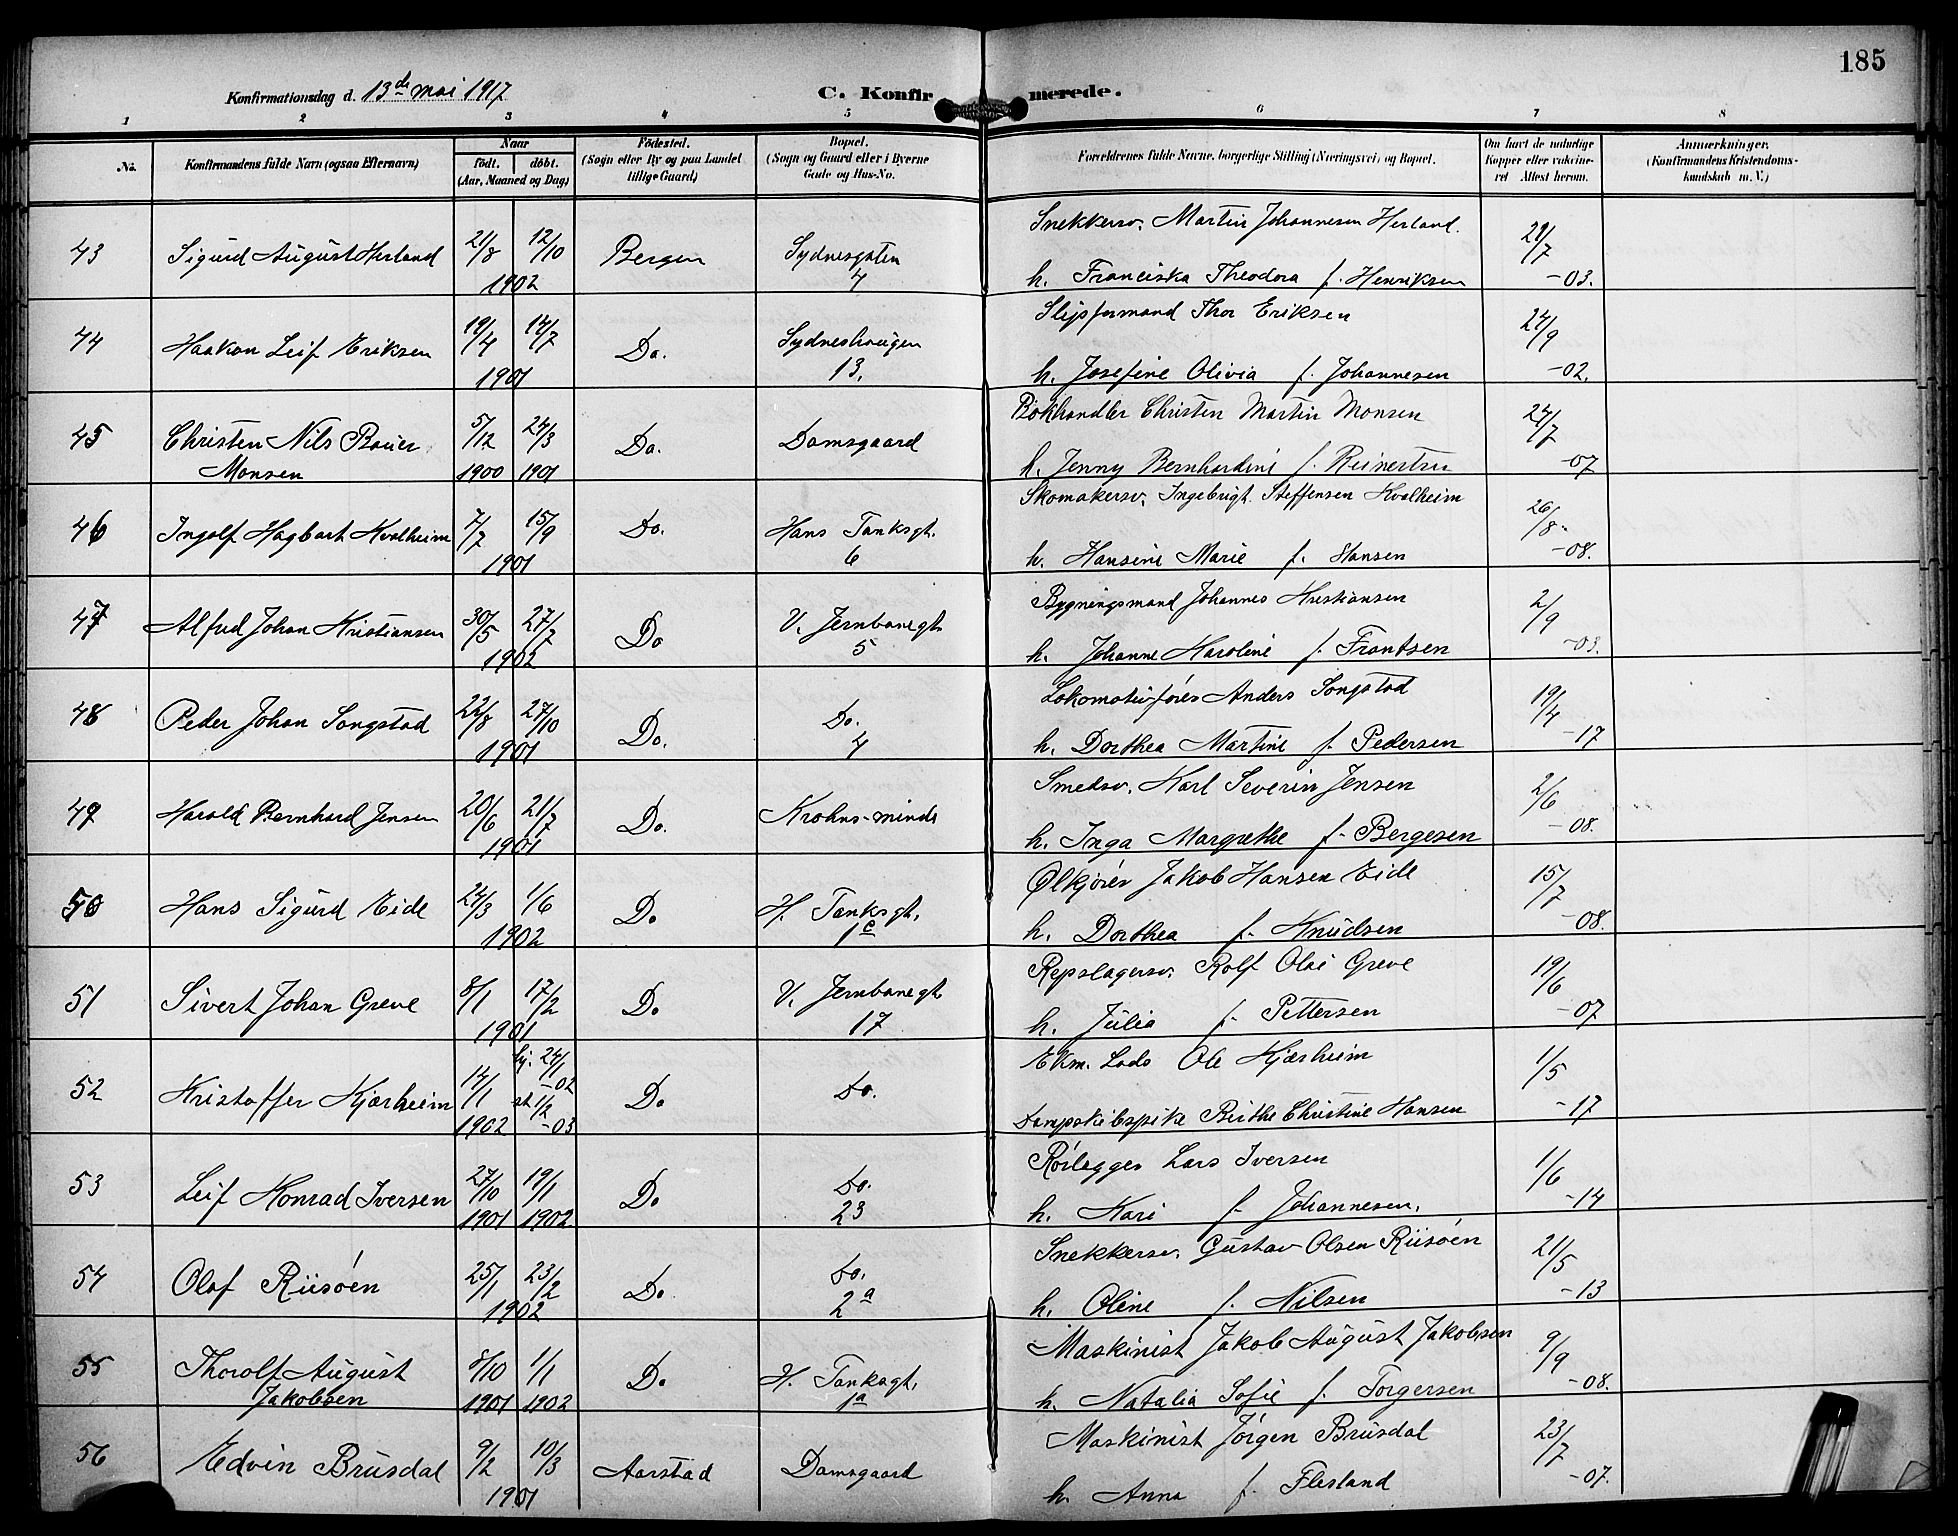 185
Konfirmationsdag d. 13de mai 1917
C. Konfirmerede.
1 2 3 4 5 6 7 8
No.
Konfirmandens fulde Navn (ogsaa Efternavn)
Naar
født. døbt.
(Aar, Maaned og Dag)
Fødested.
(Sogn eller By og paa Landet
tillige Gaard)
Bopæl.
(Sogn og Gaard eller i Byerne
Gade og Hus-No.
Forældrenes fulde Navne, borgerlige Stilling (Næringsvei) og Bopæl.
Om havt de naturlige
Kopper eller vakcine-
ret Attest herom.
Anmerkninger.
(Konfirmandens Kristendoms-
kundskab m. V.)
43 Sigurd August Herland 21/8 12/10 1902 Bergen Sydnesgaten 4
Snekkersv. Martin Johannesen Herland.
h. Franciska Theodora f. Henriksen 21/7 -03.
44 Haakon Leif Eriksen 19/4 14/7 1901 Do. Sydneshaugen 13.
Slipsformand Thor Eriksen
h. Josefine Olivia f. Johannesen 24/9 -02.
45 Christen Nils Bauer Monsen 5/12 1900 24/3 1901 Do. Damsgaard
Bokhandler Christen Martin Monsen
h. Jenny Bernhardine f. Reinertsen 24/7 -07
46 Ingolf Hagbart Kvalheim 7/7 15/9 1901 Do. Hans Tanksgt. 6
Skomakersv. Ingebrigt Steffensen Kvalheim
h. Hansine Marie f. Hansen 26/8 -08.
47 Alfred Johan Kristiansen 30/5 27/7 1902 Do V. Jernbanegt. 5
Bygningsmand Johannes Kristiansen
h. Johanne Karoline f. Frantsen 2/9 -03.
48 Peder Johan Songstad 22/8 27/10 1901 Do. Do. 4
Lokomotivfører Anders Songstad
h. Dorthea Martine f. Pedersen 19/4 -17
49 Harald Bernhard Jensen 20/6 21/7 1901 Do. Krohns-minde
Smedsv. Karl Severin Jensen
h. Inga Margrethe f. Bergesen 2/6 -08.
50 Hans Sigurd Eide 24/3 1/6 1902 Do H. Tanksgt. 1c
Ølkjører Jakob Hansen Eide
h. Dorthea f. Knudsen 15/7 -08.
51 Sivert Johan Greve 8/1 17/2 1901 Do V. Jernbanegt 17
Repslagersv. Rolf Olai Greve
h. Julia f. Pettersen 19/6 -07
52 Kristoffer Kjærheim 14/1 1902 hj. 24/1 -02 st 1/2 -03 Do Do.
Ekm. Lods Ole Kjærheim
Dampskibspike Birthe Christine Hansen 1/5 -17
53 Leif Konrad Iversen 27/10 1901 19/1 1902 Do Do. 23
Rørlegger Lars Iversen
h. Kari f. Johannesen. 1/6 -14
54 Olaf Riisøen 25/1 23/2 1902 Do. Do. 2a
Snekkersv. Gustav Olsen Riisøen
h. Oline f. Nilsen 21/5 -13
55 Thorolf August Jakobsen 8/10 1901 1/1 1902 Do H. Tanksgt. 1a
Maskinist Jakob August Jakobsen
h. Natalia Sofie f. Torgersen 9/9 -08.
56 Edvin Brusdal 9/2 10/3 1901 Aarstad Damsgaard
Maskinist Jørgen Brusdal
h. Anna f. Flesland 23/7 -07.